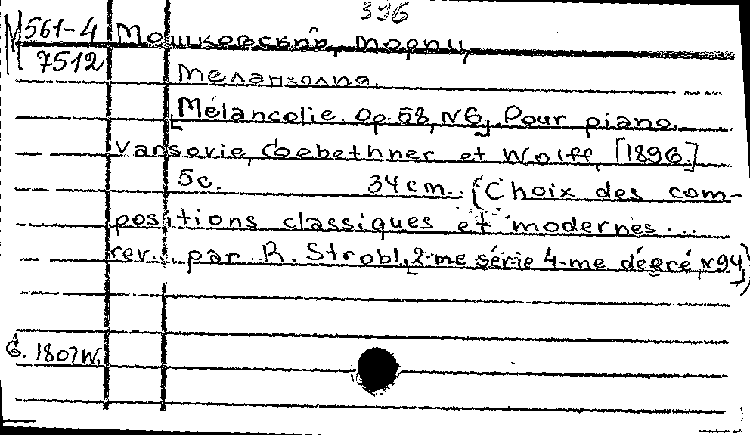 396
М561-4 Мошковский, Мориц
7512
Меланхолия.
[Mélancolie. Op. 58, N6]. Pour piano.
Varsovie, Gebethner et Wolff, [1896.]
5с. 34cm. (Choix des com-
positions classiques et modernes...
rev. par R. Strobl, 2-me série 4-me degré, N94)
G. 1807W.